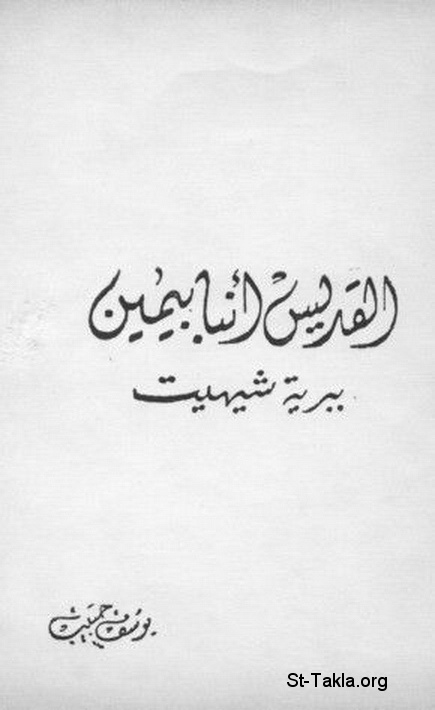 القديس أنبا بيمين
ببرية شيهيت
يوسف حبيب
St-Takla.org